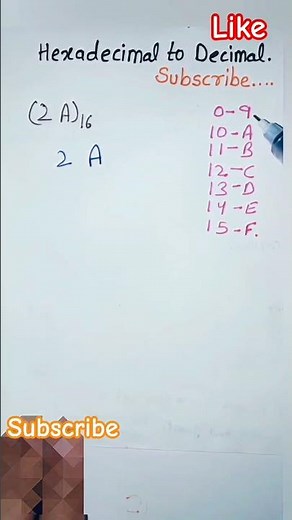 Like
Hexadecimal to Decimal.
Subscribe....
(2 A)16
2 A
0-9
10-A
11-B
12-C
13-D
14-E
15-F.
Subscribe